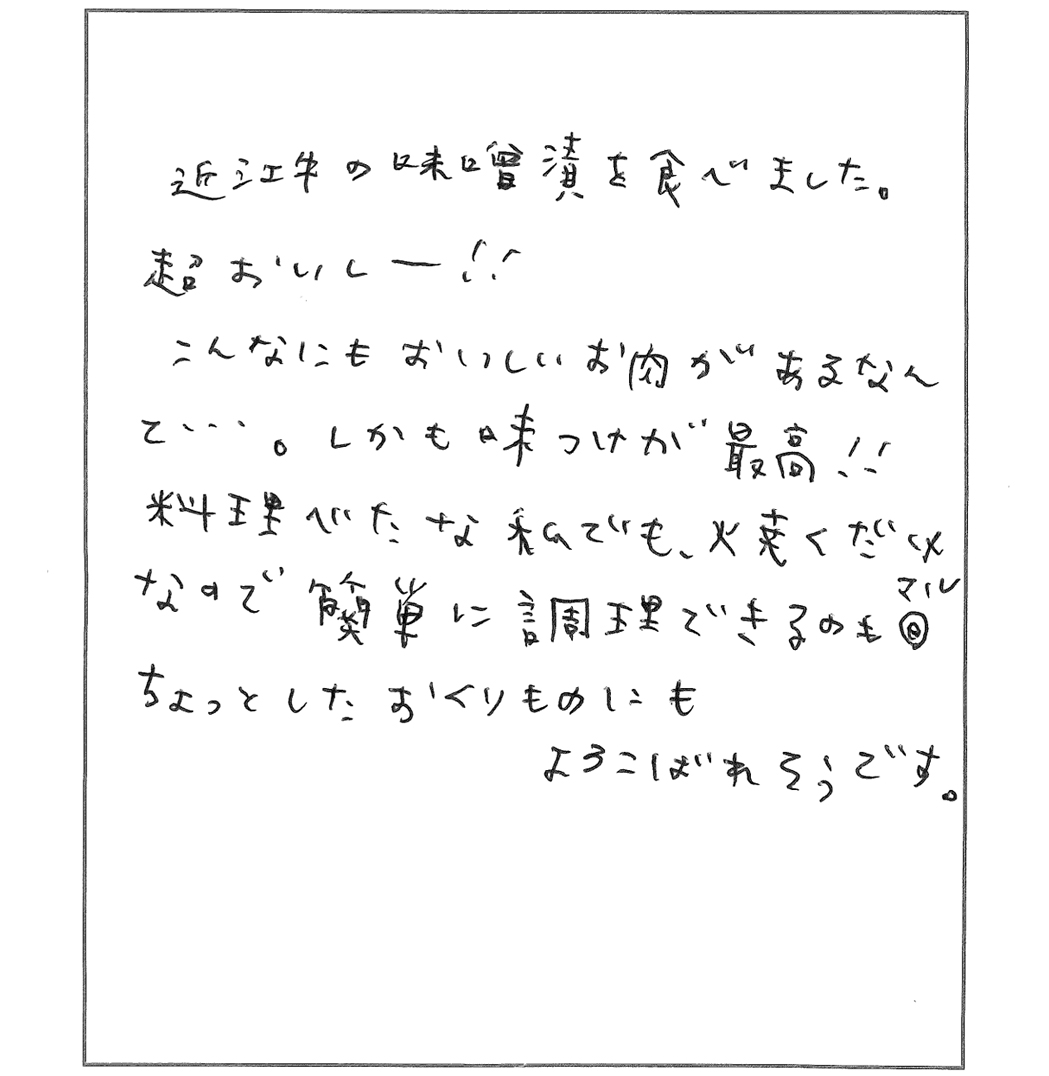 近江牛の味噌漬を食べました。
超おいしー!!
こんなにもおいしいお肉があるなん
て・・・。しかも味つけが最高!!
料理べたな私でも、焼くだけ
なので簡単に調理できるのも◎
マル
ちょっとしたおくりものにも
よろこばれそうです。